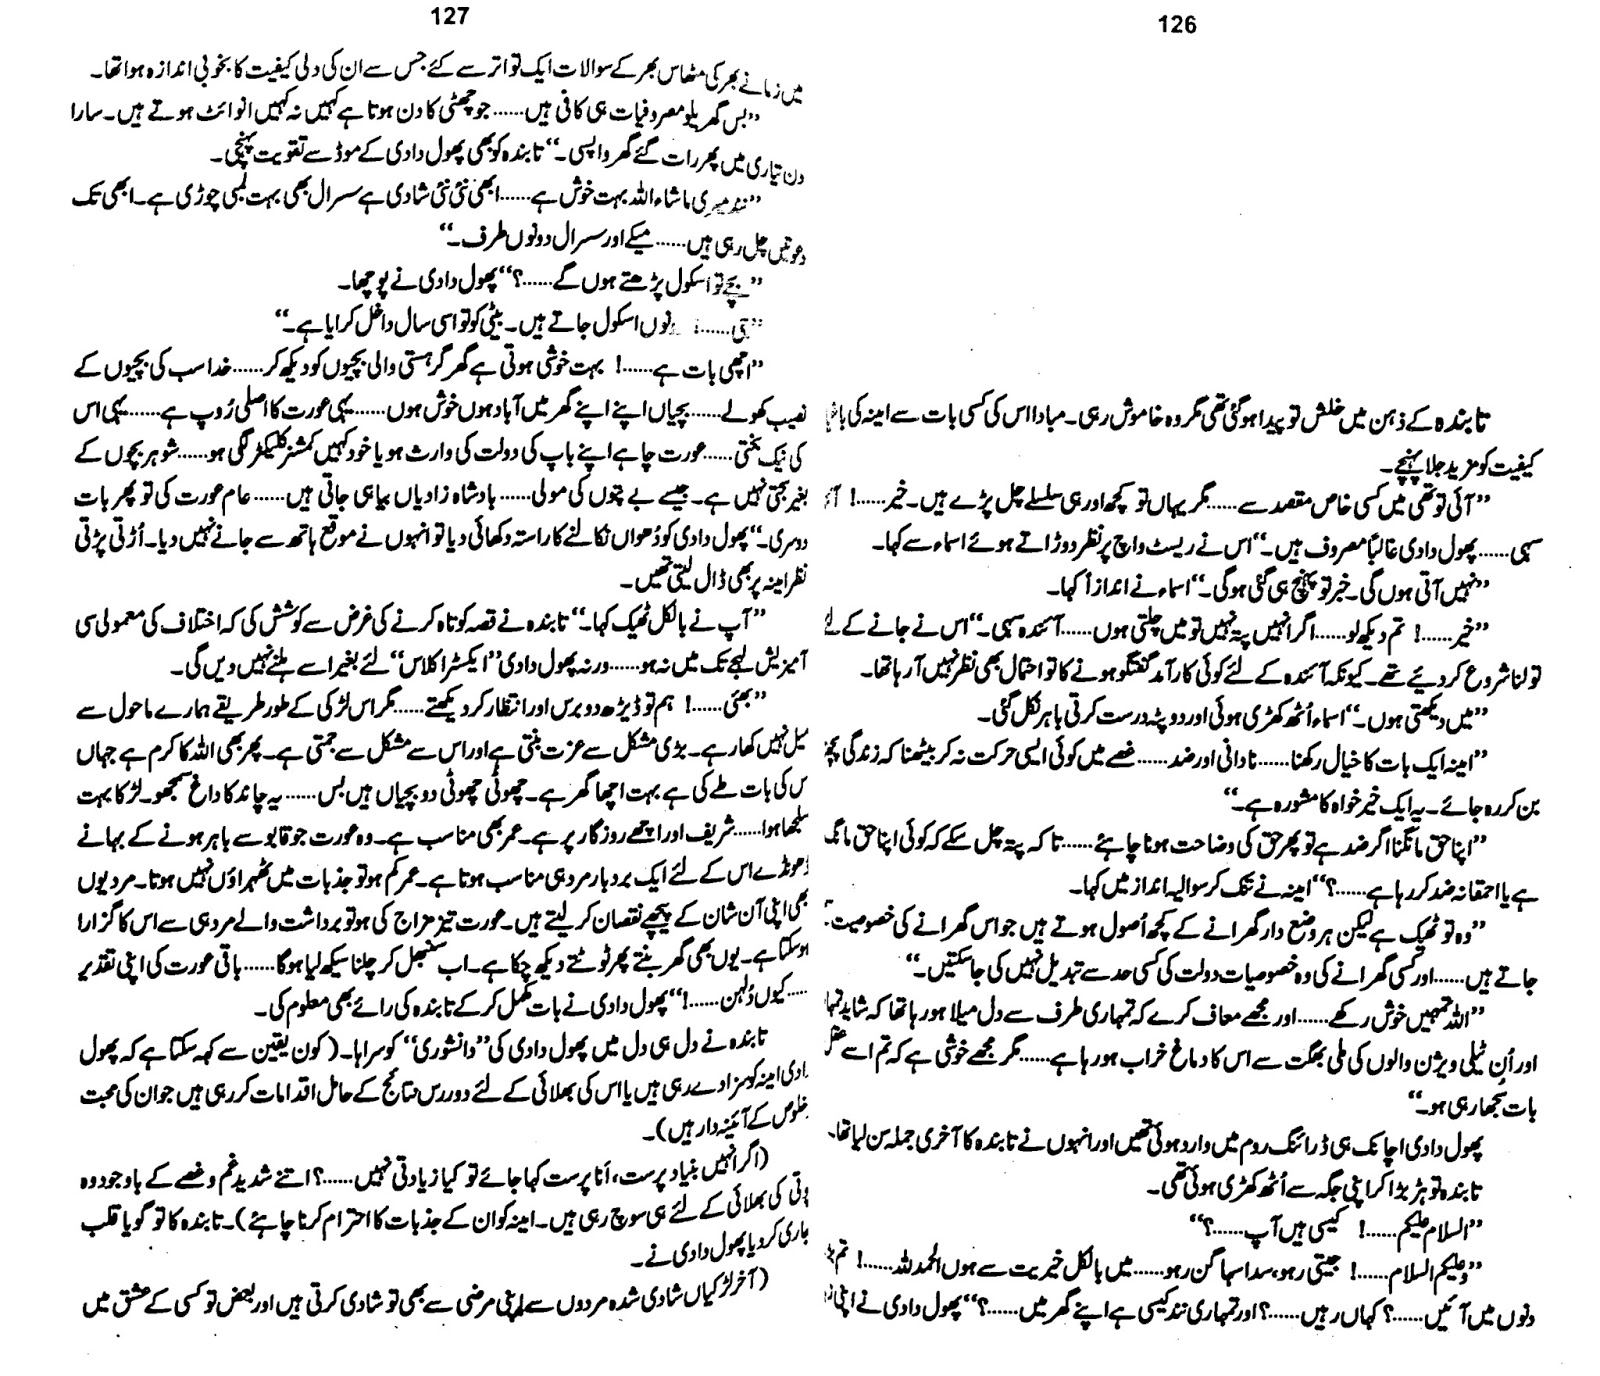 126
تابندہ کے ذہن میں خلش تو پیدا ہوگئی تھی مگر وہ خاموش رہی۔ مبادا اس کی کسی بات سے امینہ کی
کیفیت کو مزید جلا پہنچے۔
”آئی تو تھی میں کسی خاص مقصد سے......مگر یہاں تو کچھ اور ہی سلسلے چل پڑے ہیں۔ خیر......!
سہی......پھول دادی غالباً مصروف ہیں۔“ اس نے ریسٹ واچ پر نظر دوڑاتے ہوئے اسماء سے کہا۔
”نہیں آتی ہوں گی۔ خبر تو پہنچ ہی گئی ہوگی۔“ اسماء نے اندازاً کہا۔
”خیر......! تم دیکھ لو......اگر انہیں پتہ نہیں تو میں چلتی ہوں......آئندہ سہی۔“ اس نے جانے کے لئے
تولنا شروع کر دیئے تھے۔ کیونکہ آئندہ کے لئے کوئی کارآمد گفتگو ہونے کا تو احتمال بھی نظر نہیں آ رہا تھا۔
”میں دیکھتی ہوں۔“ اسماء اُٹھ کھڑی ہوئی اور دوپٹہ درست کرتی باہر نکل گئی۔
”امینہ ایک بات کا خیال رکھنا......نادانی اور ضد......غصے میں کوئی ایسی حرکت نہ کر بیٹھنا کہ زندگی
بن کر رہ جائے۔ یہ ایک خیر خواہ کا مشورہ ہے۔“
”اپنا حق مانگنا اگر ضد ہے تو پھر حق کی وضاحت ہونا چاہئے......تاکہ پتہ چل سکے کہ کوئی اپنا حق مانگ
ہے یا احمقانہ ضد کر رہا ہے......؟“ امینہ نے تنک کر سوالیہ انداز میں کہا۔
”وہ تو ٹھیک ہے لیکن ہر وضع دار گھرانے کے کچھ اُصول ہوتے ہیں جو اس گھرانے کی خصوصیت
جاتے ہیں......اور کسی گھرانے کی وہ خصوصیات دولت کی کسی حد سے تبدیل نہیں کی جاسکتیں۔“
”اللہ تمہیں خوش رکھے......اور مجھے معاف کرے کہ تمہاری طرف سے دل میلا ہو رہا تھا کہ شاید
اور اُن ٹیلی ویژن والوں کی ملی بھگت سے اس کا دماغ خراب ہو رہا ہے......مگر مجھے خوشی ہے کہ تم اسے عقل
بات سمجھا رہی ہو۔“
پھول دادی اچانک ہی ڈرائنگ روم میں وارد ہوئی تھیں اور انہوں نے تابندہ کا آخری جملہ سن لیا تھا۔
تابندہ تو ہڑبڑا کر اپنی جگہ سے اُٹھ کھڑی ہوئی تھی۔
”السلام علیکم......! کیسی ہیں آپ......؟“
”وعلیکم السلام......! جیتی رہو، سدا سہاگن رہو......میں بالکل خیریت سے ہوں الحمدللہ......! تم
دنوں میں آئیں......؟ کہاں رہیں......؟ اور تمہاری نند کیسی ہے اپنے گھر میں......؟“ پھول دادی نے اپنی
127
میں زمانے بھر کی مٹھاس بھر کے سوالات ایک تواتر سے کئے جس سے ان کی دلی کیفیت کا بخوبی اندازہ ہوا تھا۔
”بس گھریلو مصروفیات ہی کافی ہیں......جو چھٹی کا دن ہوتا ہے کہیں نہ کہیں انوائٹ ہوتے ہیں۔ سارا
دن تیاری میں پھر رات گئے گھر واپسی۔“ تابندہ کو بھی پھول دادی کے موڈ سے تقویت پہنچی۔
”نند میری ماشاء اللہ بہت خوش ہے......ابھی نئی نئی شادی ہے سسرال بھی بہت لمبی چوڑی ہے۔ ابھی تک
دعوتیں چل رہی ہیں......میکے اور سسرال دونوں طرف۔“
”بچے تو اسکول پڑھتے ہوں گے......؟“ پھول دادی نے پوچھا۔
”جی......! دونوں اسکول جاتے ہیں۔ بیٹی کو تو اسی سال داخل کرایا ہے۔“
”اچھی بات ہے......! بہت خوشی ہوتی ہے گھر گرہستی والی بچیوں کو دیکھ کر......خدا سب کی بچیوں کے
نصیب کھولے......بچیاں اپنے اپنے گھر میں آباد ہوں خوش ہوں......یہی عورت کا اصلی رُوپ ہے......یہی اس
کی نیک بختی......عورت چاہے اپنے باپ کی دولت کی وارث ہو یا خود کہیں کمشنر کلیکٹر لگی ہو......شوہر بچوں کے
بغیر سجتی نہیں ہے۔ جیسے بے پتوں کی مولی......بادشاہ زادیاں بیاہی جاتی ہیں......عام عورت کی تو پھر بات
دوسری۔“ پھول دادی کو دُھواں نکالنے کا راستہ دکھائی دیا تو انہوں نے موقع ہاتھ سے جانے نہیں دیا۔ اُڑتی پڑتی
نظر امینہ پر بھی ڈال لیتی تھیں۔
”آپ نے بالکل ٹھیک کہا۔“ تابندہ نے قصہ کوتاہ کرنے کی غرض سے کوشش کی کہ اختلاف کی معمولی سی
آمیزش لہجے تک میں نہ ہو......ورنہ پھول دادی ”ایکسٹرا کلاس“ لئے بغیر اسے ہلنے نہیں دیں گی۔
”بھئی......! ہم تو ڈیڑھ دو برس اور انتظار کر دیکھتے......مگر اس لڑکی کے طور طریقے ہمارے ماحول سے
میل نہیں کھا رہے۔ بڑی مشکل سے عزت بنتی ہے اور اس سے مشکل سے جمتی ہے۔ پھر بھی اللہ کا کرم ہے جہاں
اس کی بات طے کی ہے بہت اچھا گھر ہے۔ چھوٹی چھوٹی دو بچیاں ہیں بس......یہ چاند کا داغ سمجھو۔ لڑکا بہت
سلجھا ہوا......شریف اور اچھے روزگار پر ہے۔ عمر بھی مناسب ہے۔ وہ عورت جو قابو سے باہر ہونے کے بہانے
ڈھونڈے اس کے لئے ایک بردبار مرد ہی مناسب ہوتا ہے۔ عمر کم ہو تو جذبات میں ٹھہراؤ نہیں ہوتا۔ مرد یوں
بھی اپنی آن شان کے پیچھے نقصان کر لیتے ہیں۔ عورت تیز مزاج کی ہو تو برداشت والے مرد ہی سے اس کا گزارا
ہوسکتا ہے۔ یوں بھی گھر بنتے پھر ٹوٹتے دیکھ چکا ہے۔ اب سنبھل کر چلنا سیکھ لیا ہوگا......باقی عورت کی اپنی تقدیر
......کیوں دُلہن......!“ پھول دادی نے بات مکمل کر کے تابندہ کی رائے بھی معلوم کی۔
تابندہ نے دل ہی دل میں پھول دادی کی ”دانشوری“ کو سراہا۔ (کون یقین سے کہہ سکتا ہے کہ پھول
دادی امینہ کو سزا دے رہی ہیں یا اس کی بھلائی کے لئے دور رس نتائج کے حامل اقدامات کر رہی ہیں جو ان کی محبت
خلوص کے آئینہ دار ہیں)۔
(اگر انہیں بنیاد پرست، اَنا پرست کہا جائے تو کیا زیادتی نہیں......؟ اتنے شدید غم و غصے کے باوجود وہ
پوتی کی بھلائی کے لئے ہی سوچ رہی ہیں۔ امینہ کو ان کے جذبات کا احترام کرنا چاہئے)۔ تابندہ کا تو گویا قلب
جاری کر دیا پھول دادی نے۔
(آخر لڑکیاں شادی شدہ مردوں سے اپنی مرضی سے بھی تو شادی کرتی ہیں اور بعض تو کسی کے عشق میں